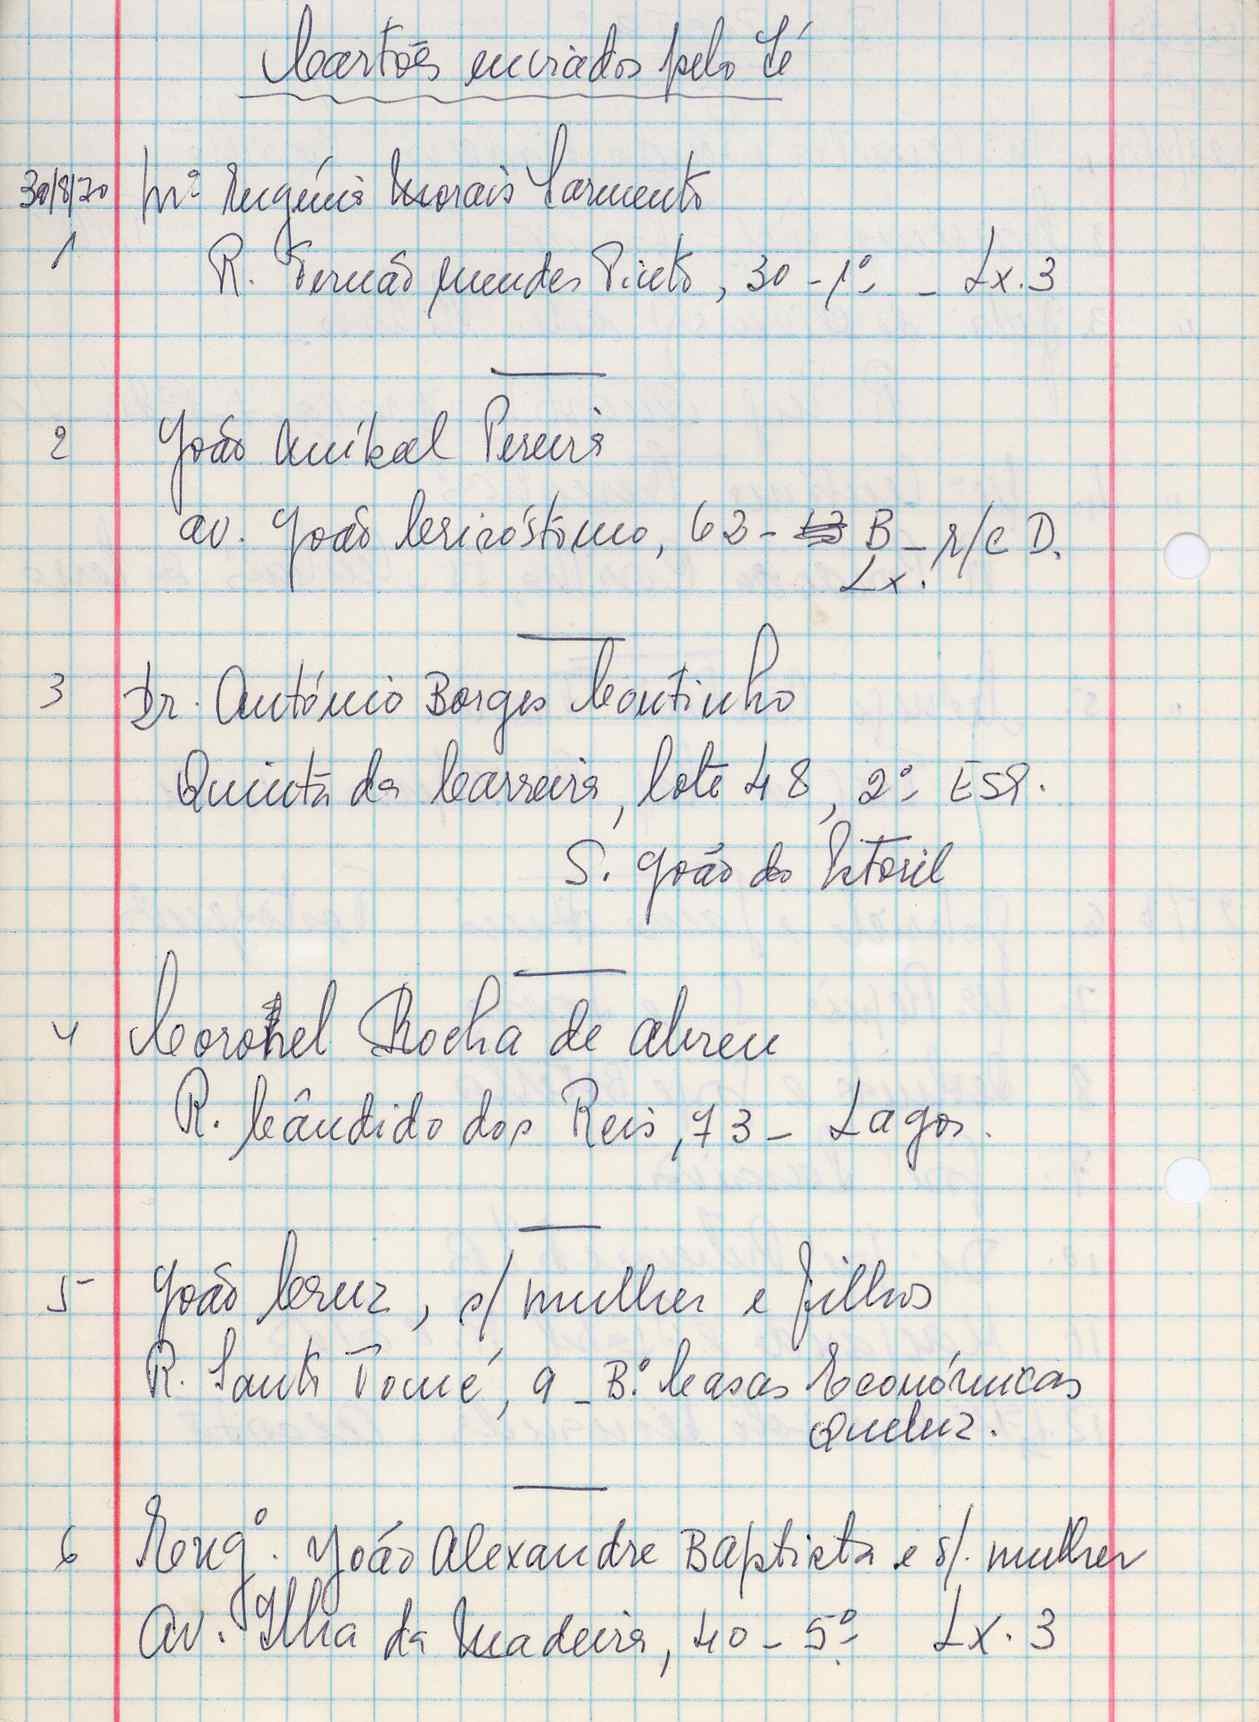 Cartões enviados pelo Zé
30/8/70 Mª Eugénia Morais Sarmento
1 R. Fernão Mendes Pinto, 30 - 1º - Lx. 3
2 João Aníbal Pereira
Av. João Crisóstomo, 62 - B - r/c D.
Lx.
3 Dr. António Borges Coutinho
Quinta da Carreira, lote 48, 2º ESQ.
S. João do Estoril
4 Coronel Rocha de Abreu
R. Cândido dos Reis, 73 - Lagos.
5 João Cruz, s/ mulher e filhos
R. Santa Tomé, 9 - B.º Casas Económicas
Queluz.
6 Engº. João Alexandre Baptista e s/. mulher
Av. Ilha da Madeira, 40 - 5º Lx. 3